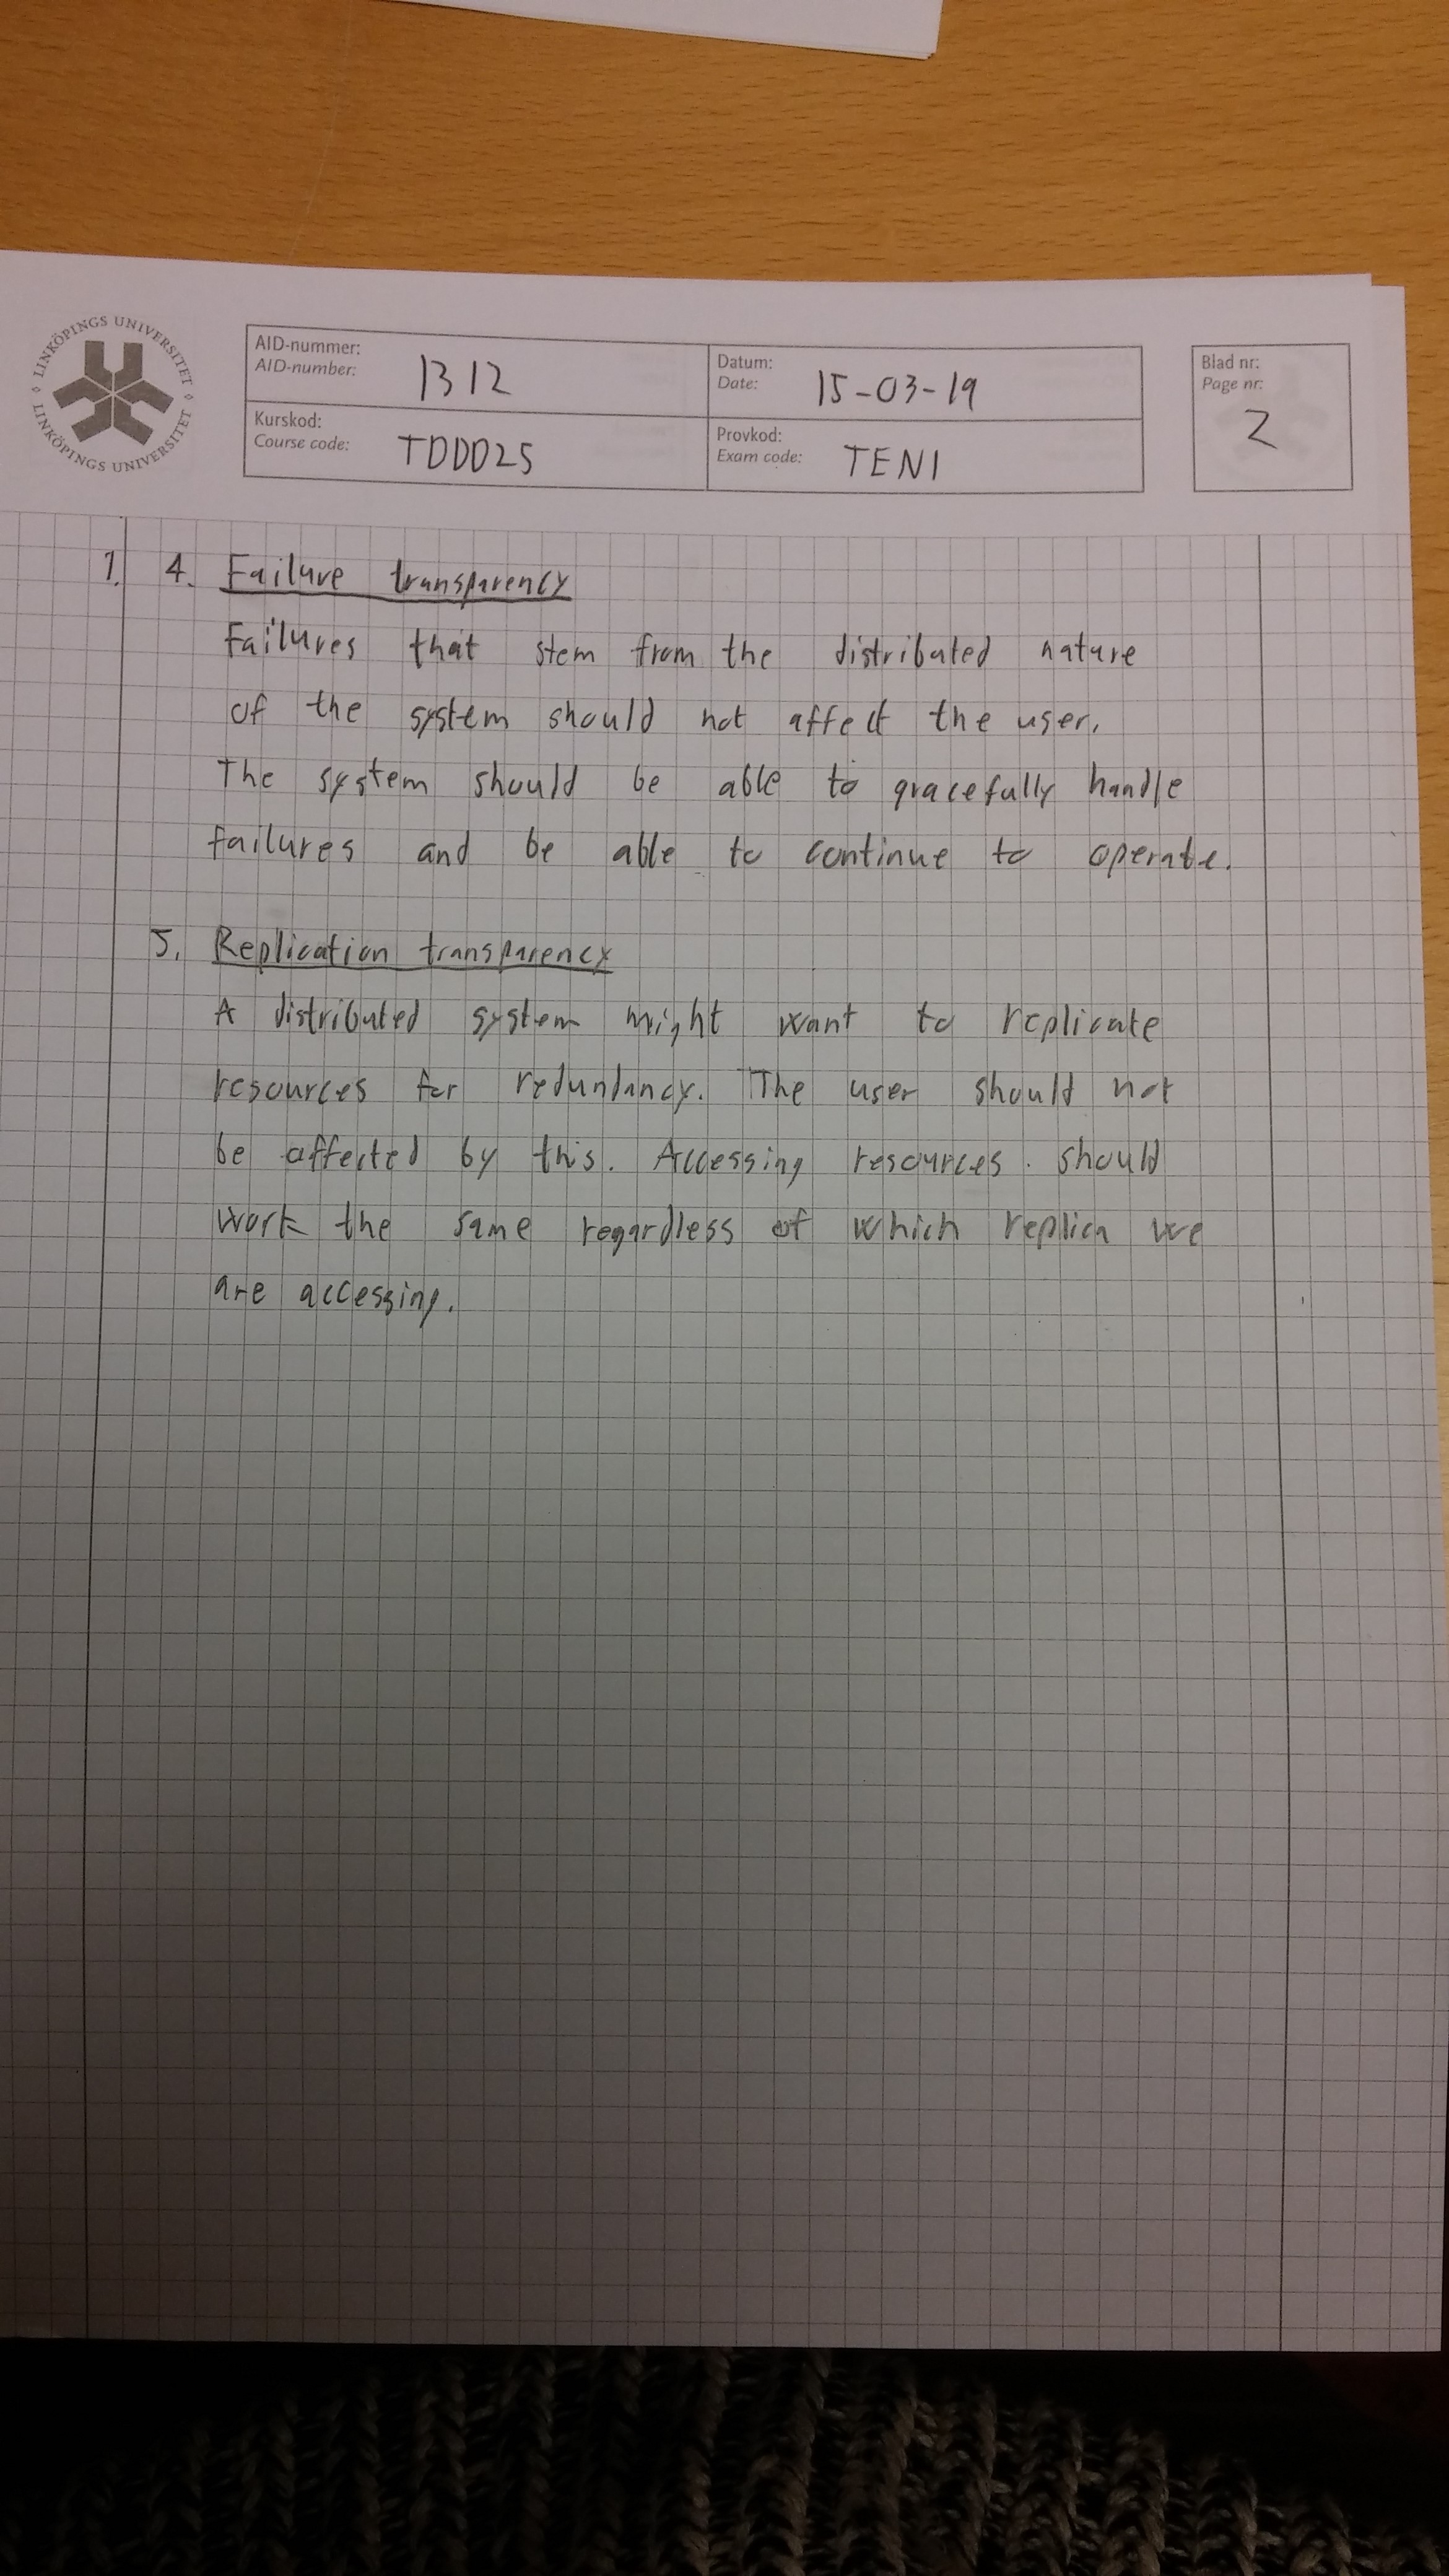 LINKÖPINGS UNIVERSITET
LINKÖPINGS UNIVERSITET
AID-nummer:
AID-number: 1312
Datum:
Date: 15-03-19
Blad nr:
Page nr:
2
Kurskod:
Course code: TDDD25
Provkod:
Exam code: TEN1
1. 4. Failure transparency
Failures that stem from the distributed nature
of the system should not affect the user.
The system should be able to gracefully handle
failures and be able to continue to operate.
5. Replication transparency
A distributed system might want to replicate
resources for redundancy. The user should not
be affected by this. Accessing resources should
work the same regardless of which replica we
are accessing.